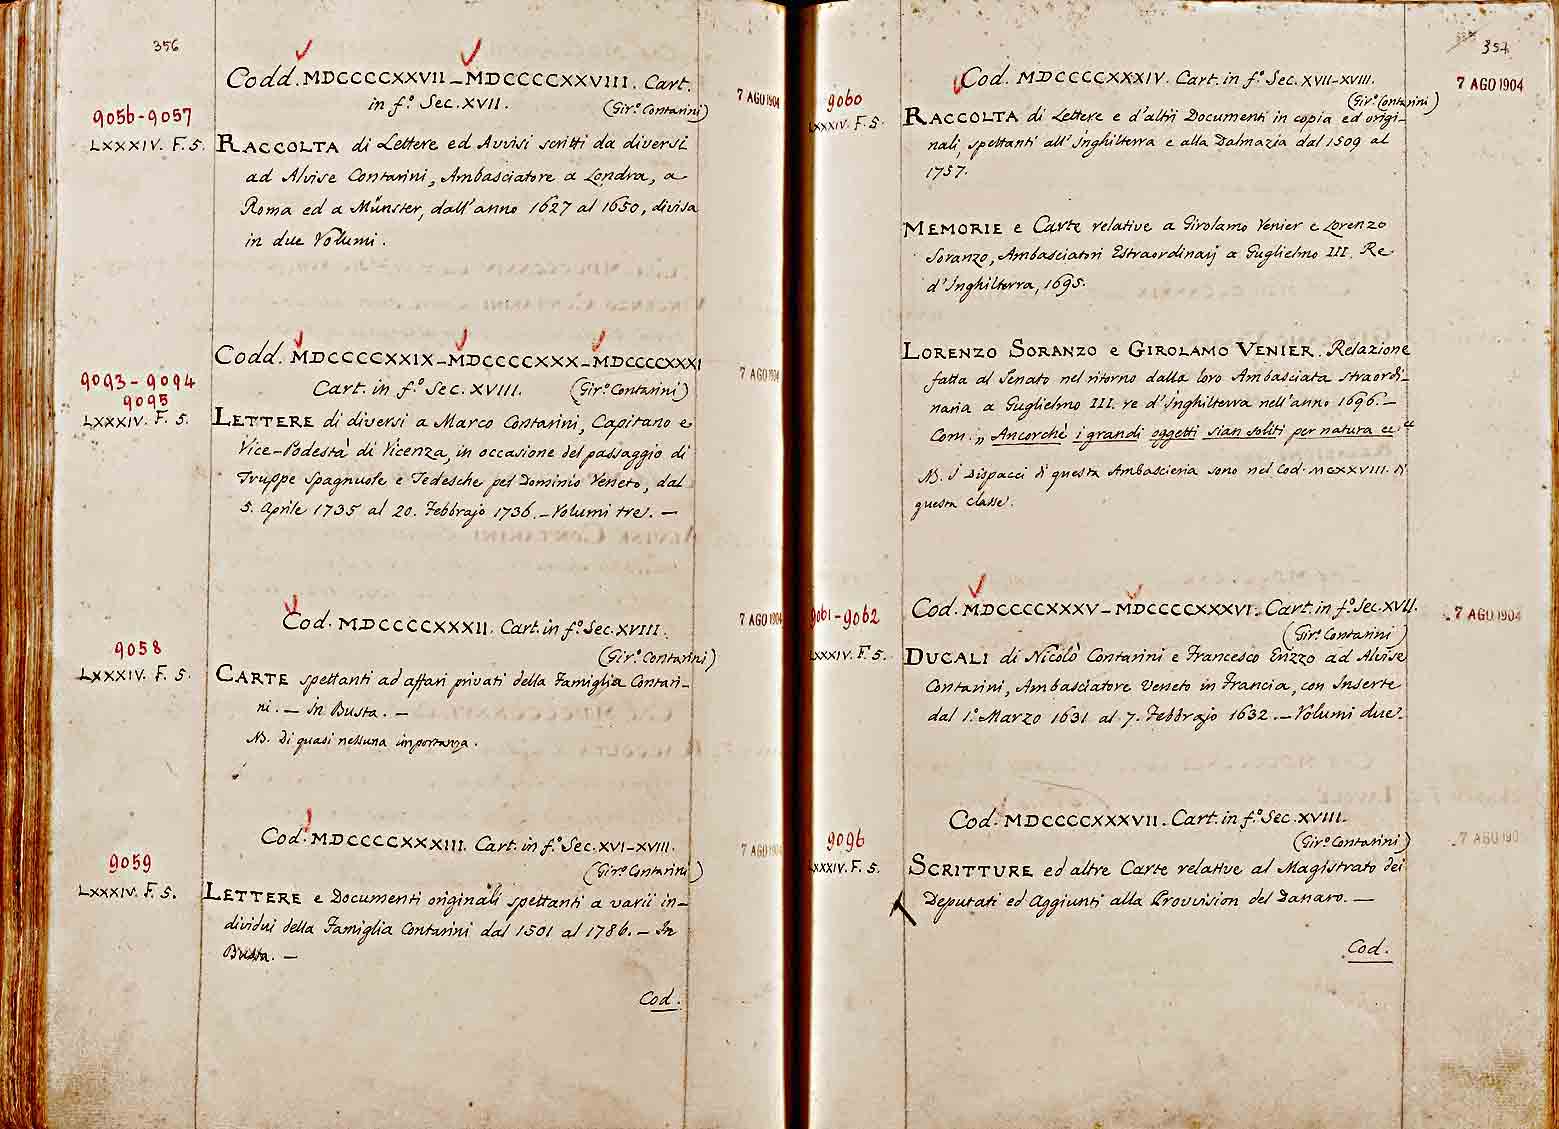 356
Codd. MDCCCCXXVII – MDCCCCXXVIII. Cart.
in f.º Sec. XVII.
(Gir.º Contarini)
7 AGO 1904
9056-9057
LXXXIV. F. 5.
RACCOLTA di Lettere ed Avvisi scritti da diversi
ad Alvise Contarini, Ambasciatore a Londra, a
Roma ed a Münster, dall'anno 1627 al 1650, divisa
in due Volumi.
Codd. MDCCCCXXIX – MDCCCCXXX – MDCCCCXXXI
Cart. in f.º Sec. XVIII. (Gir.º Contarini)
7 AGO 1904
9093 - 9094
9095
LXXXIV. F. 5.
LETTERE di diversi a Marco Contarini, Capitano e
Vice-Podestà di Vicenza, in occasione del passaggio di
Truppe Spagnuole e Tedesche pel Dominio Veneto, dal
5. Aprile 1735 al 20. Febbrajo 1736. – Volumi tre. –
Cod. MDCCCCXXXII. Cart. in f.º Sec. XVIII.
(Gir.º Contarini)
7 AGO 1904
9058
LXXXIV. F. 5.
CARTE spettanti ad affari privati della Famiglia Contari-
ni. – In Busta. –
NB. Di quasi nessuna importanza.
Cod. MDCCCCXXXIII. Cart. in f.º Sec. XVI-XVIII.
(Gir.º Contarini)
7 AGO 1904
9059
LXXXIV. F. 5.
LETTERE e Documenti originali spettanti a varii in-
dividui della Famiglia Contarini dal 1501 al 1786. – In
Busta. –
Cod.
357
Cod. MDCCCCXXXIV. Cart. in f.º Sec. XVII-XVIII.
(Gir.º Contarini)
7 AGO 1904
9060
LXXXIV. F. 5.
RACCOLTA di Lettere e d'altri Documenti in copia ed origi-
nali, spettanti all'Inghilterra e alla Dalmazia dal 1509 al
1757.
MEMORIE e Carte relative a Girolamo Venier e Lorenzo
Soranzo, Ambasciatori Estraordinarj a Guglielmo III. Re
d'Inghilterra, 1695.
LORENZO SORANZO e GIROLAMO VENIER. Relazione
fatta al Senato nel ritorno dalla loro Ambasciata straordi-
naria a Guglielmo III. re d'Inghilterra nell'anno 1696. –
Com. „ Ancorchè i grandi oggetti sian soliti per natura ec. “
NB. I Dispacci di questa Ambascieria sono nel Cod. MCXXVIII. di
questa classe.
Cod. MDCCCCXXXV – MDCCCCXXXVI. Cart. in f.º Sec. XVII.
(Gir.º Contarini)
7 AGO 1904
9061-9062
LXXXIV. F. 5.
DUCALI di Nicolò Contarini e Francesco Erizzo ad Alvise
Contarini, Ambasciatore Veneto in Francia, con Inserte
dal 1.º Marzo 1631 al 7. Febbrajo 1632. – Volumi due.
Cod. MDCCCCXXXVII. Cart. in f.º Sec. XVIII.
(Gir.º Contarini)
7 AGO 190
9096
LXXXIV. F. 5.
SCRITTURE ed altre Carte relative al Magistrato dei
Deputati ed Aggiunti alla Provvision del Danaro. –
Cod.